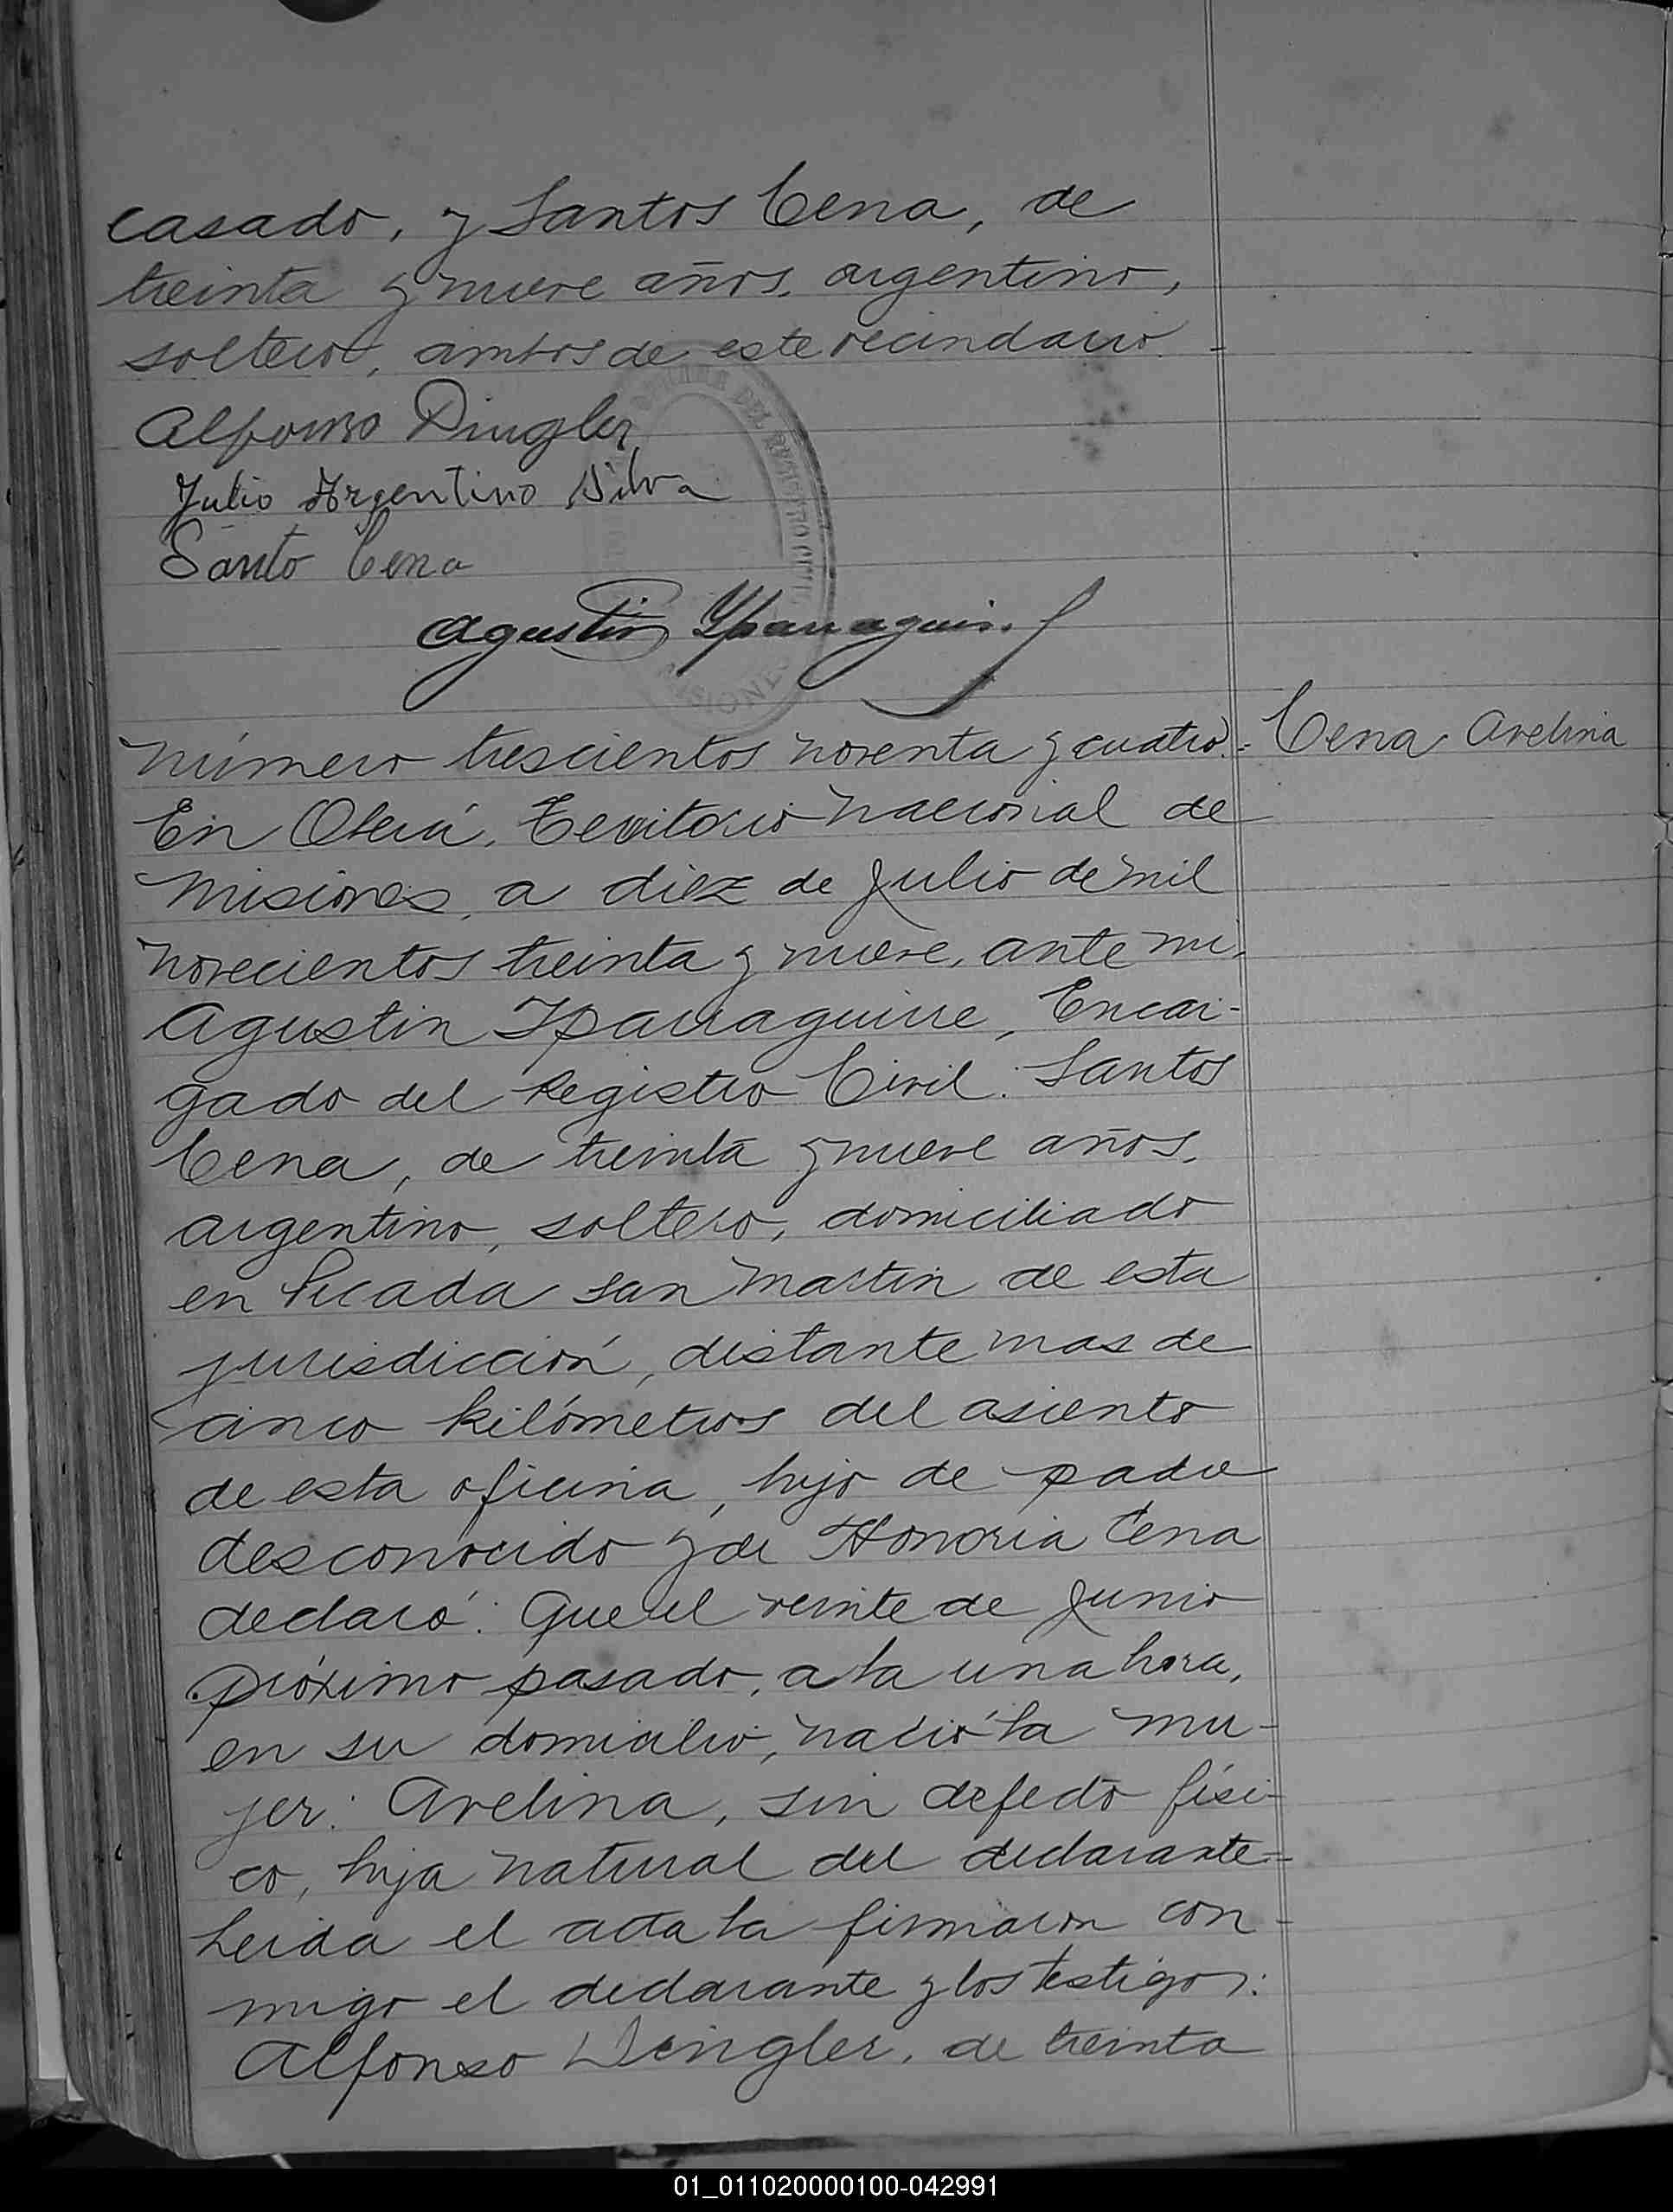 casado, y Santos Cena, de
treinta y nueve años, argentino,
soltero, ambos de este vecindario. -
Alfonso Dingler
Julio Argentino Silva
Santo Cena
Agustin Yparraguirre
MISIONES
Número trescientos noventa y cuatro. - Cena Avelina
En Oberá, Territorio Nacional de
Misiones, a diez de Julio de mil
novecientos treinta y nueve, ante mi,
Agustin Iparraguirre, Encar-
gado del Registro Civil. Santos
Cena, de treinta y nueve años,
argentino, soltero, domiciliado
en Picada San Martin de esta
jurisdicción, distante mas de
cinco kilómetros del asiento
de esta oficina, hijo de padre
desconocido y de Honoria Cena
declaró: Que el veinte de Junio
próximo pasado, a la una hora,
en su domicilio, nació la mu-
jer: Avelina, sin defecto físi-
co, hija natural del declarante-
Leida el acta la firmaron con-
migo el declarante y los testigos:
Alfonso Dingler, de treinta
01_011020000100-042991